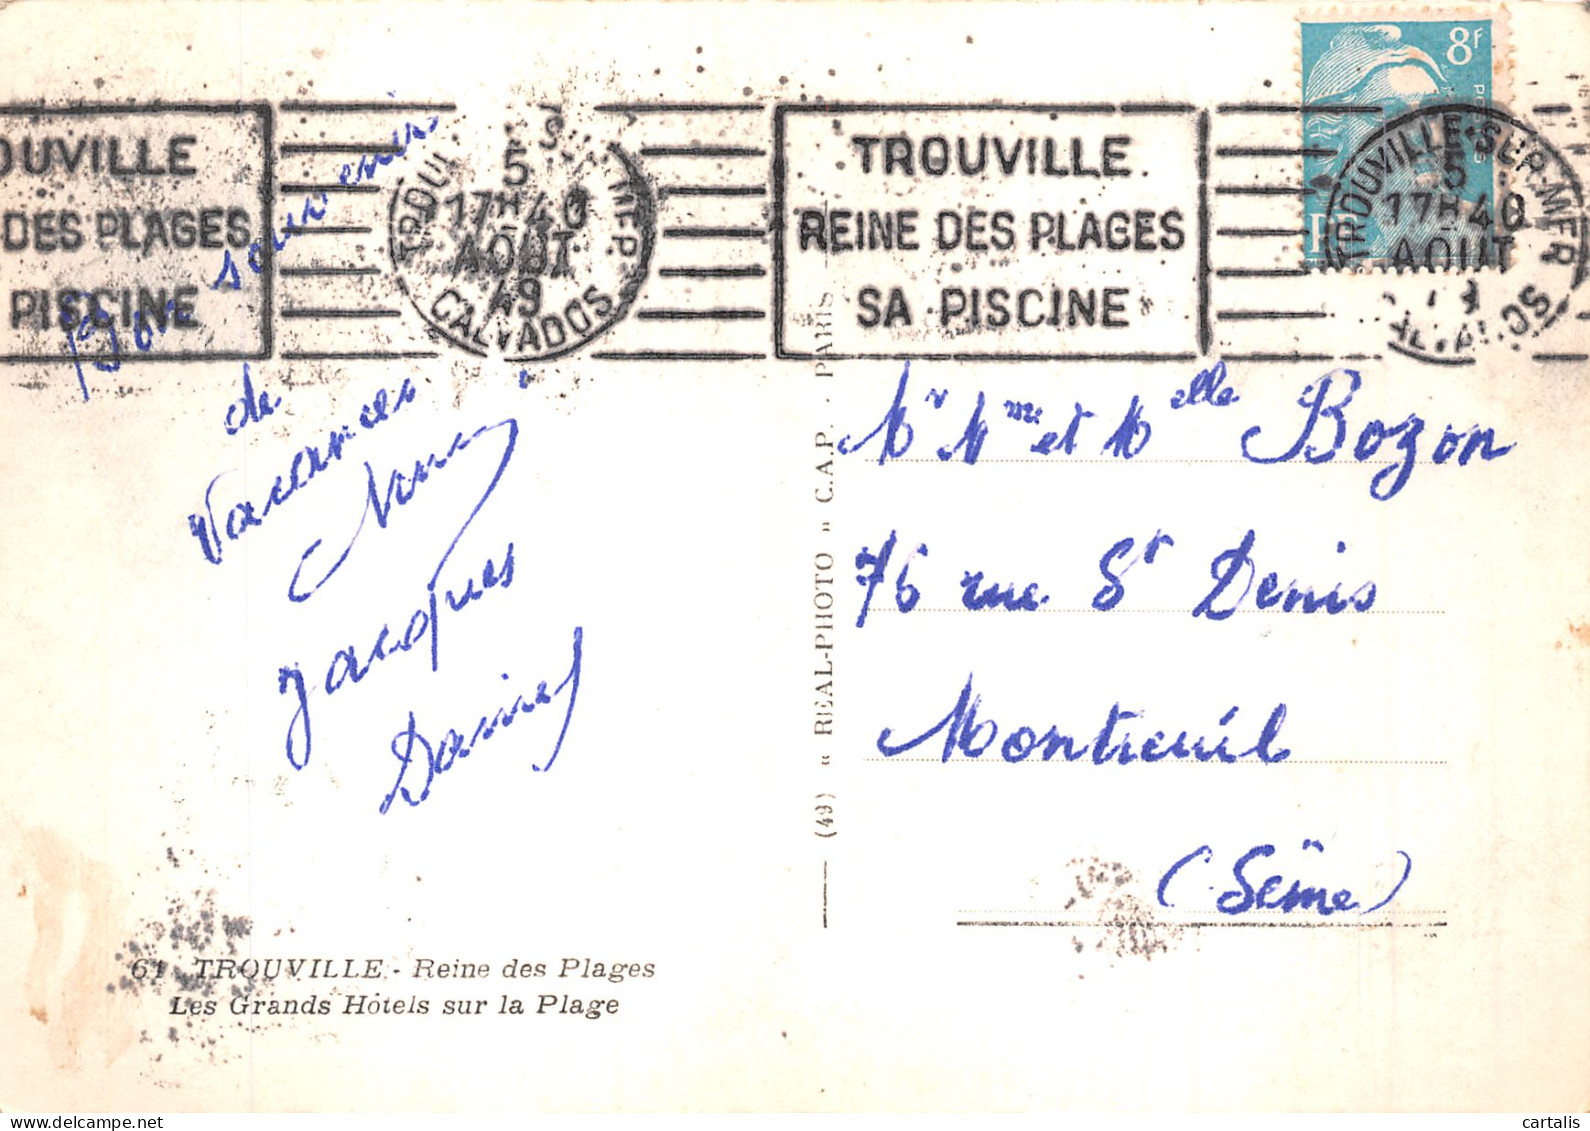 OUVILLE
DES PLAGES
PISCINE
5
17H40
AOUT
49
CALVADOS
TROUVILLE
REINE DES PLAGES
SA PISCINE
8F
TROUVILLE-SUR-MER
5
17H40
AOUT
Bon souvenir
de
Vacances
Jacques
Daniel
Mr Mme et Melle Bozon
76 rue St Denis
Montreuil
(Seine)
(49) « REAL-PHOTO » C.A.P. - PARIS
61 TROUVILLE - Reine des Plages
Les Grands Hôtels sur la Plage
cartalis